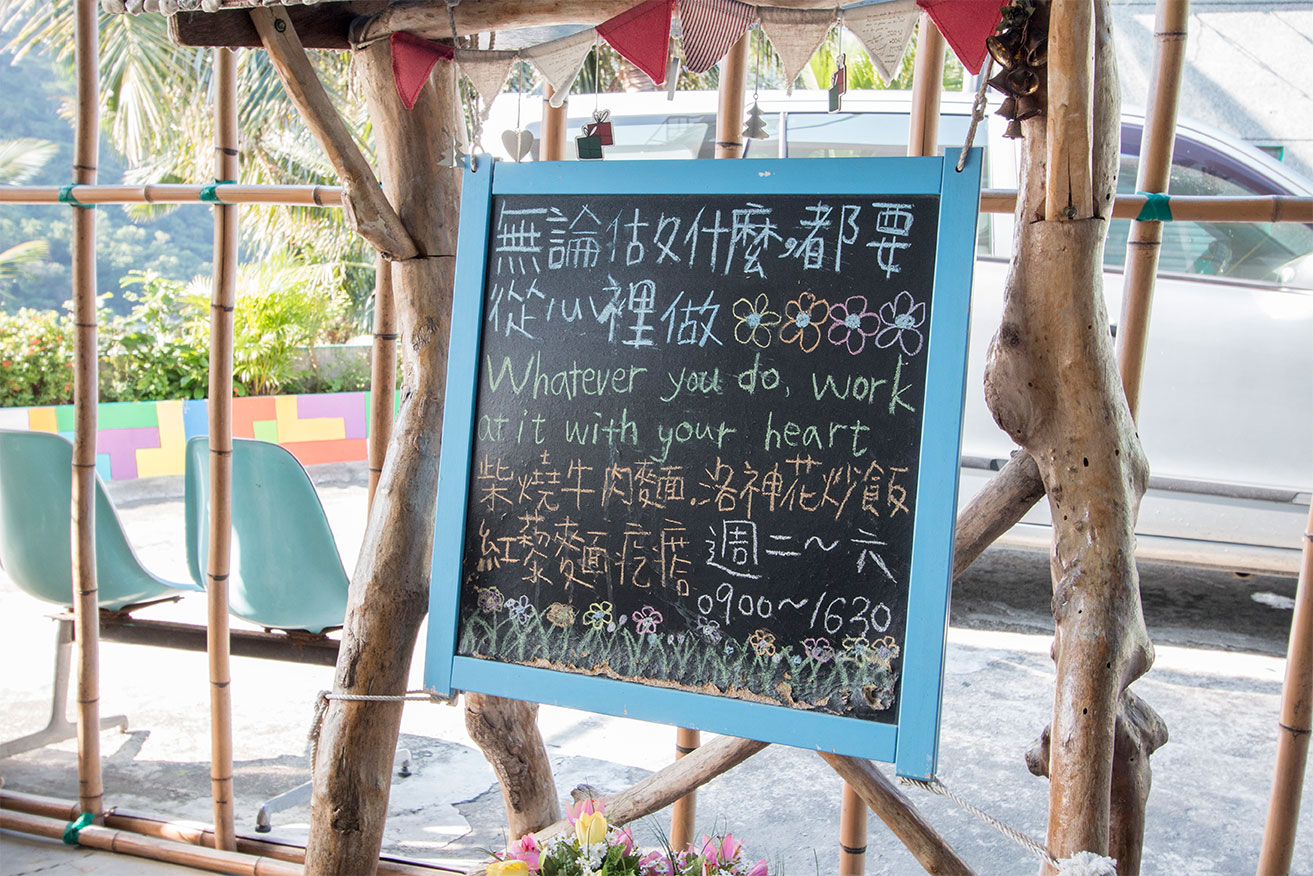 無論做什麼,都要
從心裡做
Whatever you do, work
at it with your heart
柴燒牛肉麵.洛神花炒飯
紅藜麥麵疙瘩 週二~六
0900~1630